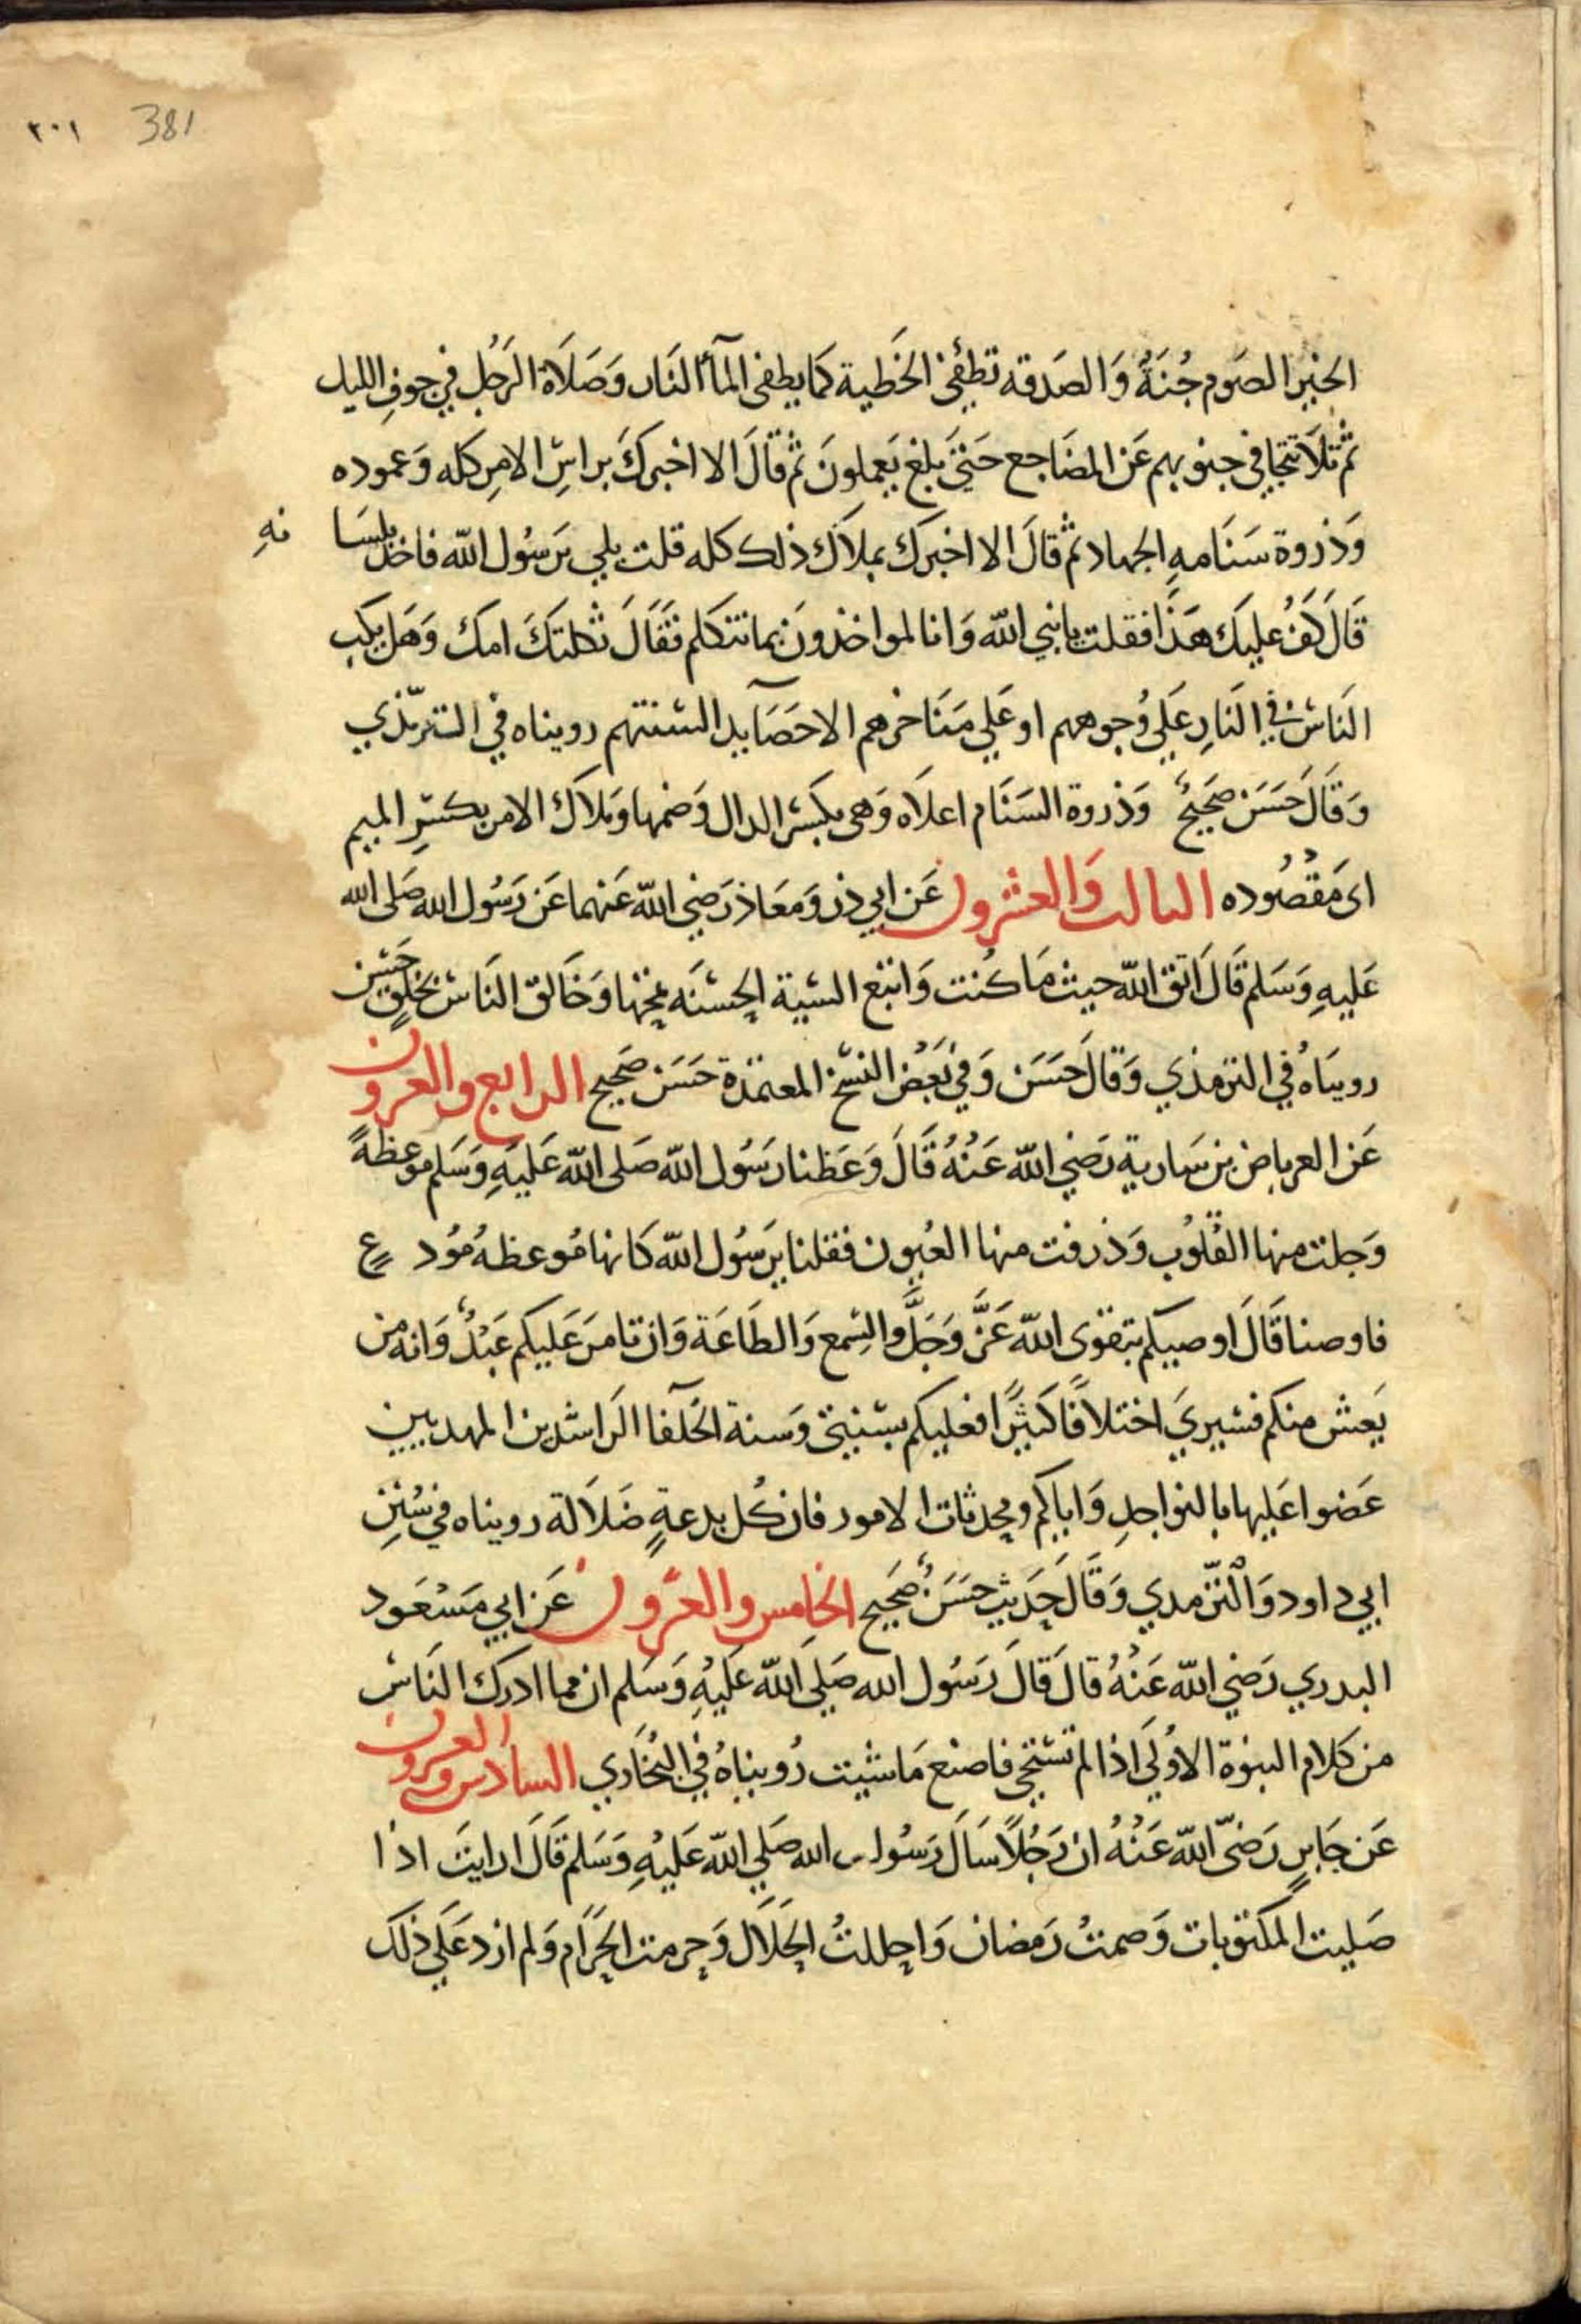 ٣٠١ 381
الخير الصَوم جُنَةٌ وَالصَدقه تطفئ الخَطية كما يطفى المآ النَار وَصَلَاة الرَجُل في جوفِ الليل
ثم تَلاَ تتجافى جنوبهم عَن المضَاجع حَتىَ بلغ يَعملونَ ثم قَالَ الا اخبركَ براسِ الامِر كله وَعموده
وَذروة سَنَامهِ الجهاد ثم قَالَ الا اخبرك بملاَك ذلك كله قلت بلي يَرسُول الله فاخذ بلسَا نهِ
قَالَ كَف عليك هَذَا فقلت يا نبي الله وَانا لمواخذونَ بما نتكلم فقَالَ ثكلتكَ امك وَهَل يكب
النَاس في النَارِ عَلي وُجوههم او عَلي مَنَاخرهم الا حصَايد السنتهم رويناه في الترمّذي
وَقَالَ حَسَن صَحيحٌ وَذروة السَنَام اعلاَه وَهى بكسْر الدال وَضمها وَملاَك الامر بكسْرِ الميم
اى مَقْصُوده الثالث وَالعشرون عَن ابي ذر وَمعَاذ رَضي الله عَنهما عَن رَسُول الله صَلى الله
عَليهِ وَسَلم قَالَ اتق الله حيث مَا كُنت وَاتبع السَية الحسْنَه تمحها وَخَالق النَاس بخلقٍ حَسَن
رويَناهُ في الترمذي وَقالَ حَسَن وَفي بَعْض النسْخ المعتمدَة حَسَن صَحيح الرابع والعرون
عَن العرباض بن سَارية رَضي الله عَنْهُ قَالَ وَعَظنا رَسُول الله صَلى الله عَليهِ وَسَلم موعظةً
وَجلت منها القُلوُب وَذرفت منها العُيون فقلنا يرَسُول الله كَانها مُوعظهُ مُود عٍ
فاوصنا قَالَ اوصيكم بتقوى الله عَزَّ وَجَلَّ والسمع وَالطَاعَة وَان تامرَ عَليكم عَبْدٌ وَانه من
يَعش منكم فسَيريَ اختلاَفًا كثَيرًا فعليكم بسْنتيَ وَسنة الخَلفآ الرَاشدين المهديين
عَضوا عَليها بالنواجلِ وَاياكم ومحدثات الامور فان كُل بدعةٍ ضَلاَلة رويناه في سُننِ
ابي داود وَالْترّمدي وَقَالَ حَديث حسَنٌ صَحيح الخامس والعرون عَن ابي مَسْعَود
البدري رَضي الله عَنْهُ قالَ قالَ رَسُول الله صَلي الله عَليْهِ وَسَلم ان مما ادرك النَاس
من كَلام النبوة الاوُلي اذا لم تسْتحي فاصنع مَا شيت رُويناهُ في البُخاَري السادس والعرون
عَن جَابرٍ رَضىّ الله عَنْهُ ان رَجُلاً سَالَ رَسُول الله صَلي الله عَليْهِ وَسَلم قَالَ ارايتَ اذا
صَليت المكتوبات وَصمتُ رَمضان وَاحللتُ الحَلاَل وَحرمت الحَرَام وَلم ازد عَلي ذلكَ